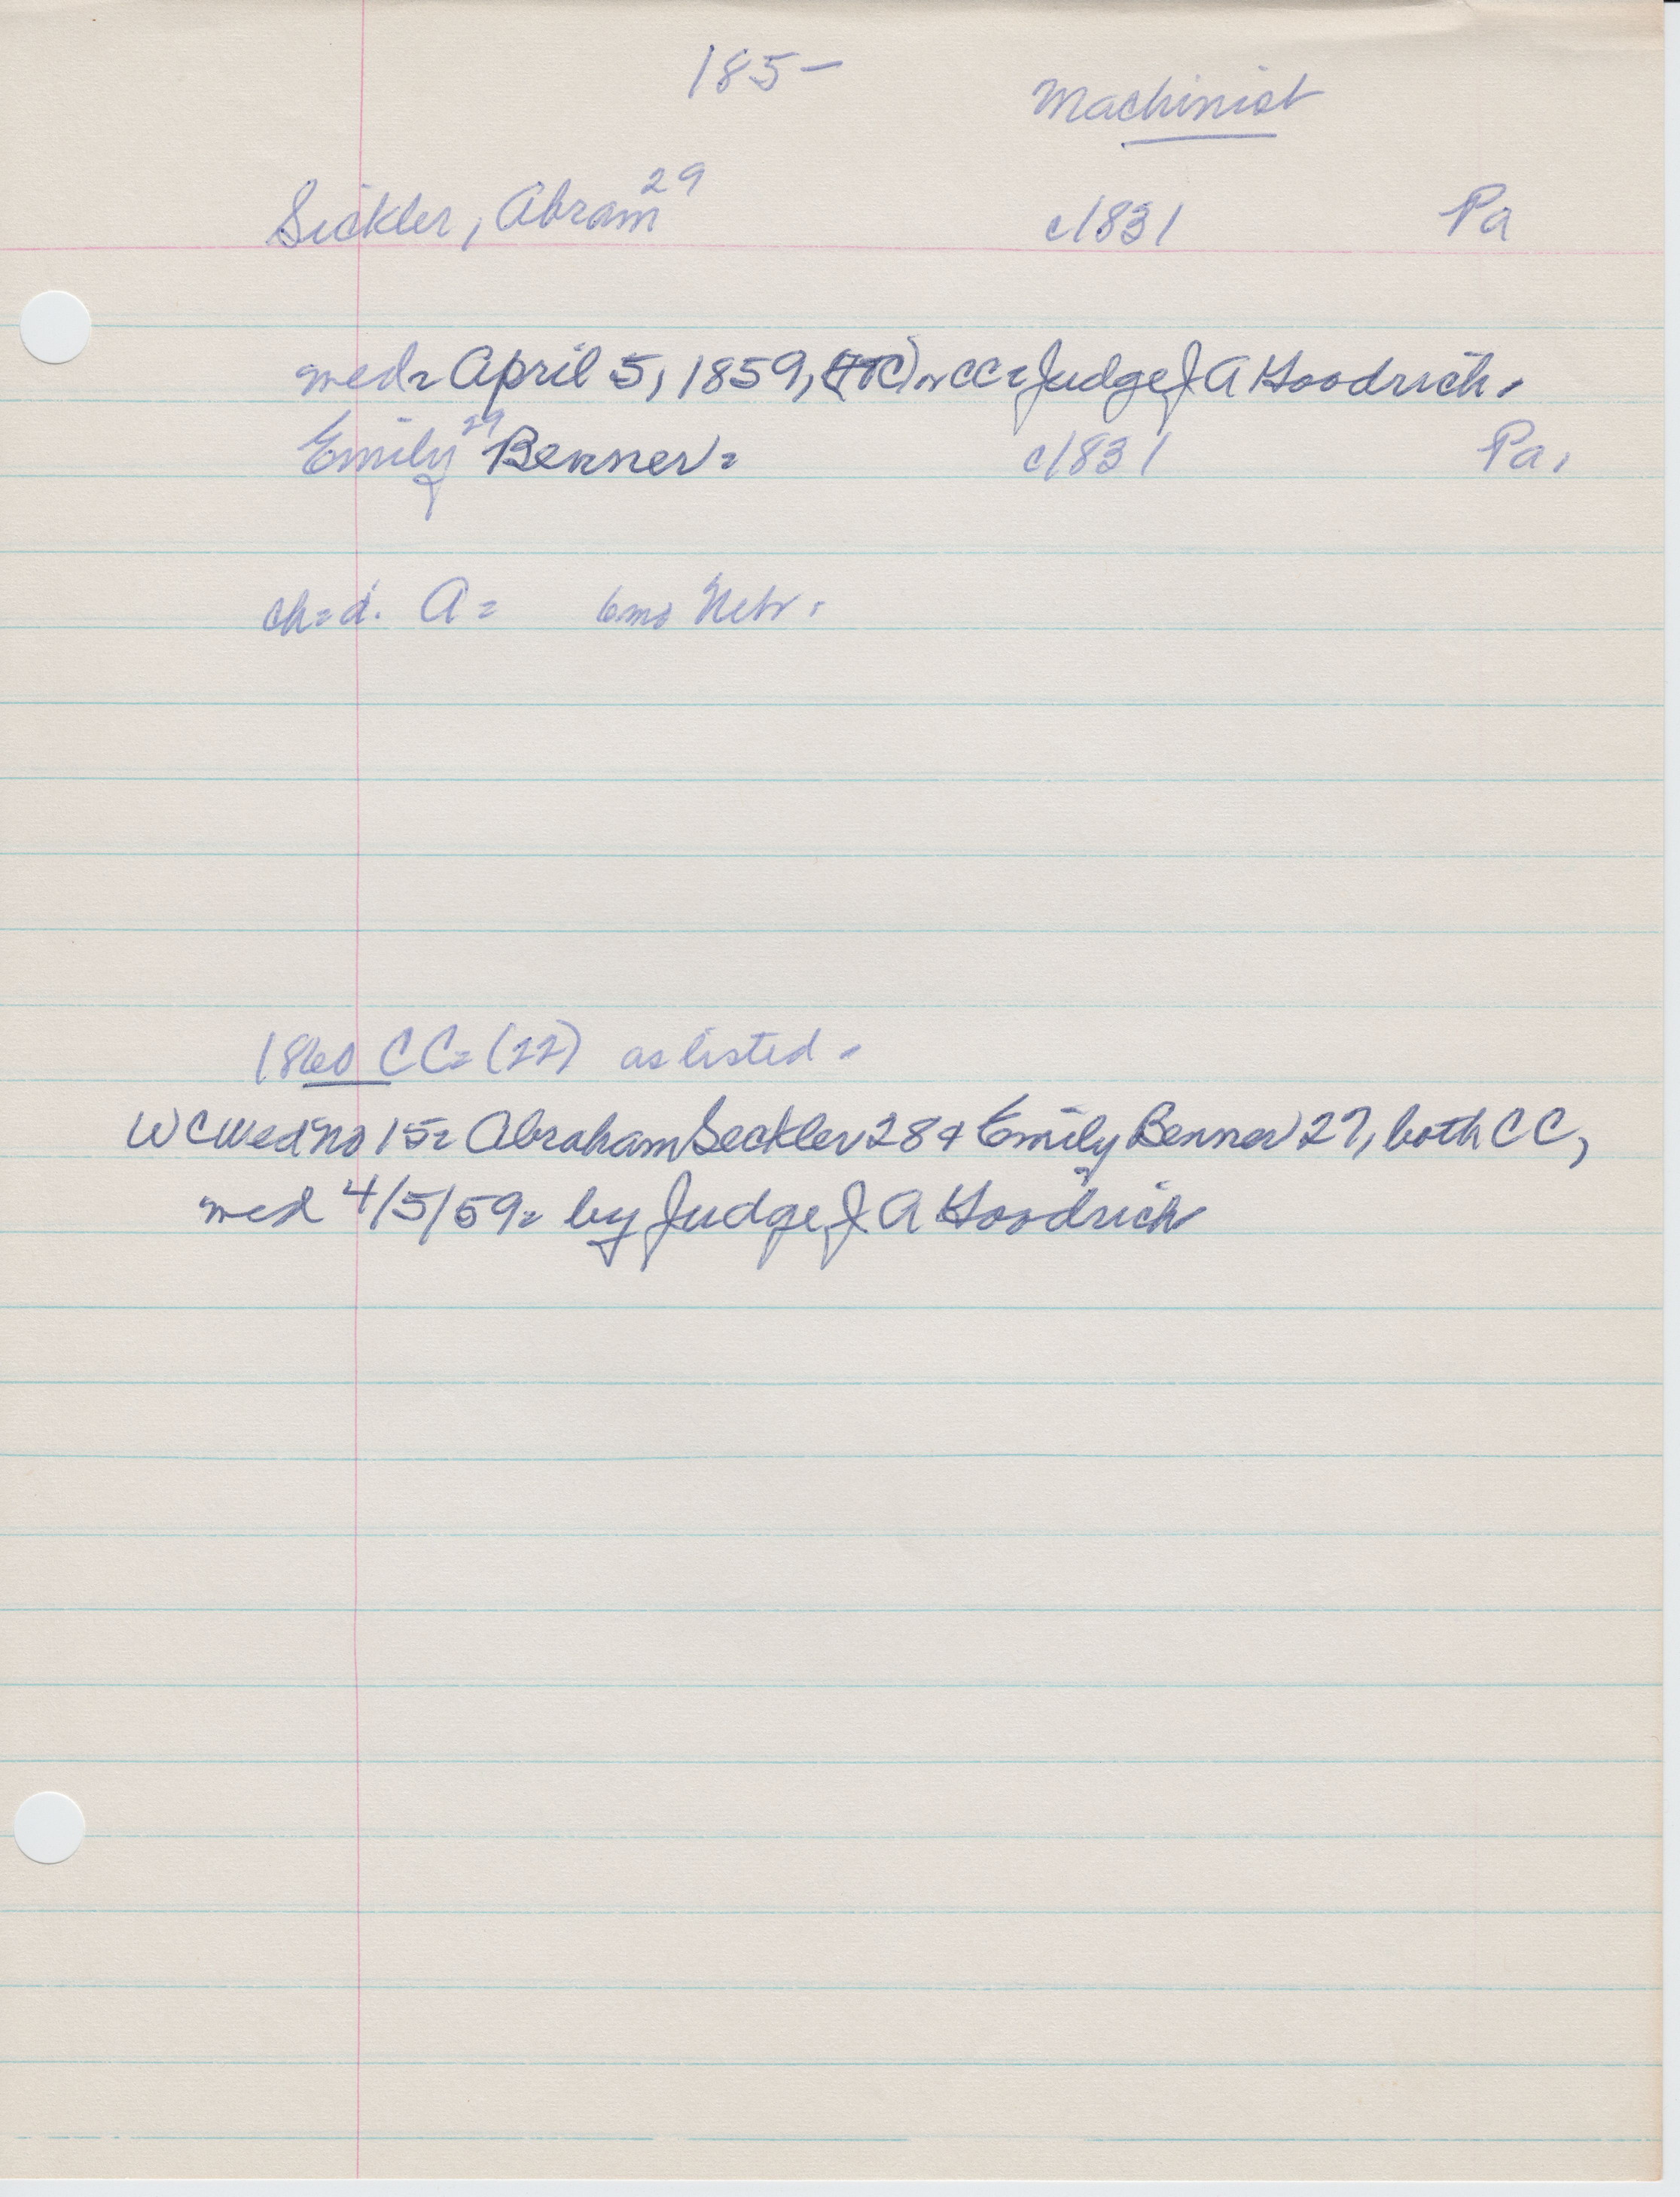 185-
Machinist
Sickler, Abram 29 c1831 Pa
wed= April 5, 1859, CC= Judge J A Goodrich.
Emily 29 Benner= c1831 Pa.
ch=d. A= 6mo Nebr.
1860 CC= (22) as listed.
WC Wed no 15= Abraham Seckler 28 & Emily Benner 27, both CC,
wed 4/5/59= by Judge J A Goodrich